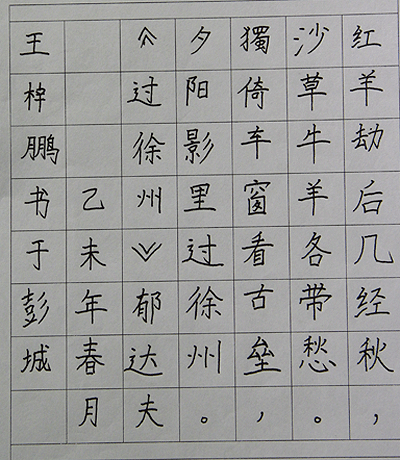 红羊劫后几经秋，
沙草牛羊各带愁。
獨倚车窗看古垒，
夕阳影里过徐州。
《过徐州》郁达夫
乙未年春月
王梓鹏书于彭城